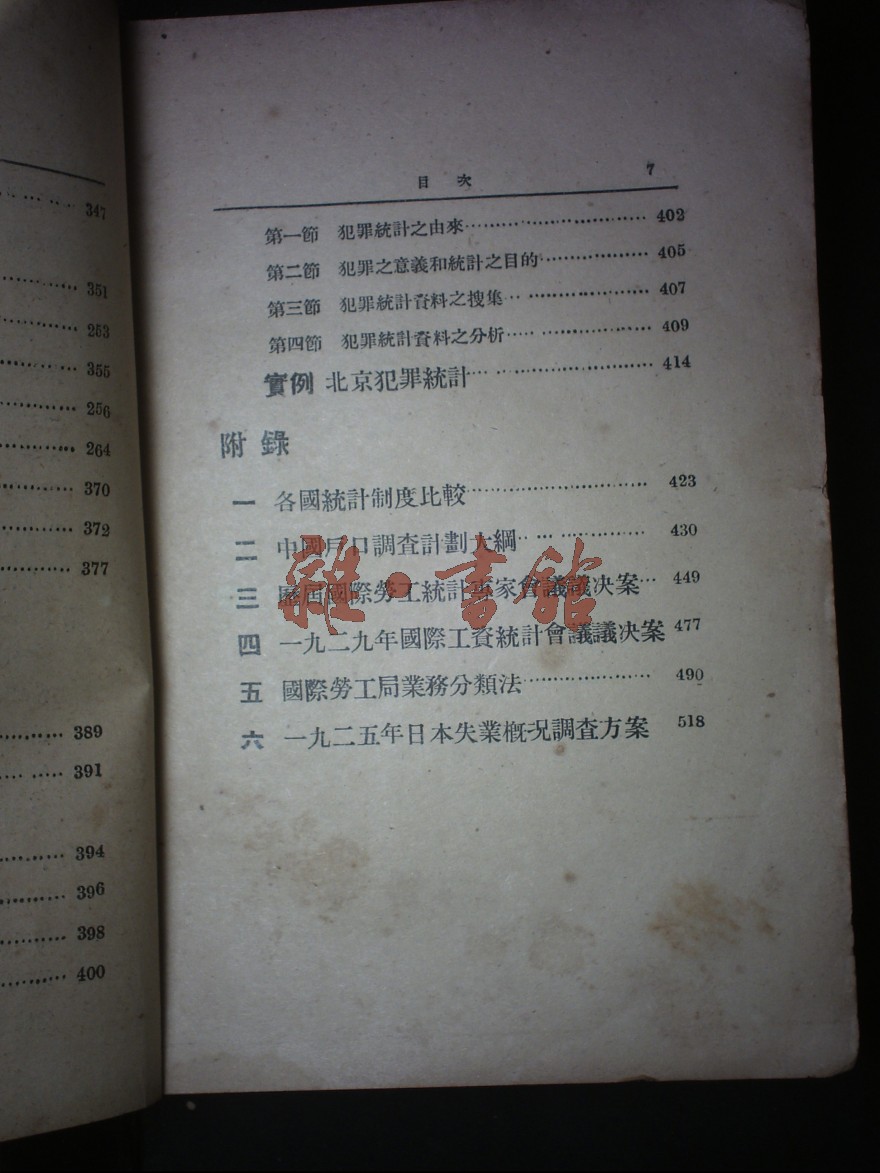 347
351
253
355
256
264
370
372
377
389
391
394
396
398
400
目次 7
第一節 犯罪統計之由來 402
第二節 犯罪之意義和統計之目的 405
第三節 犯罪統計資料之搜集 407
第四節 犯罪統計資料之分析 409
實例 北京犯罪統計 414
附錄
一 各國統計制度比較 423
二 中國戶口調查計劃大綱 430
三 歷屆國際勞工統計專家會議議决案 449
四 一九二九年國際工資統計會議議决案 477
五 國際勞工局業務分類法 490
六 一九二五年日本失業概况調查方案 518
雜·書館